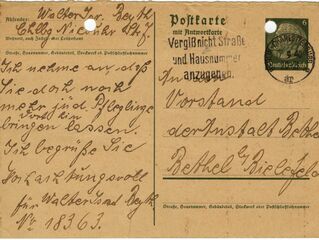 Absender: Walter Isr. Beyth
Chlbg Niebuhr Str.
Wohnort, auch Zustell- oder Leitpostamt
Straße, Hausnummer, Gebäudeteil, Stockwerk od. Postschließfachnummer
Ich nehme an, daß
Sie doch noch
mehr jüd Pfleglinge
dorthin
bringen lassen.
Ich begrüße Sie
Hochachtungsvoll
für Walter Israel Beyth
No 18363.
Postkarte
mit Antwortkarte
Vergiß nicht Straße
und Hausnummer
anzugeben
6
Deutsches Reich
An den
Vorstand
der Anstalt Bethel
Bethel b/ Bielefeld
Straße, Hausnummer, Gebäudeteil, Stockwerk oder Postschließfachnummer